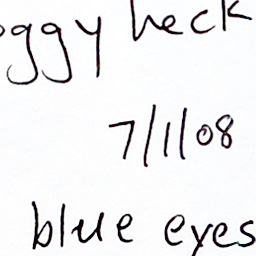 oggy heck
7/1/08
blue eyes